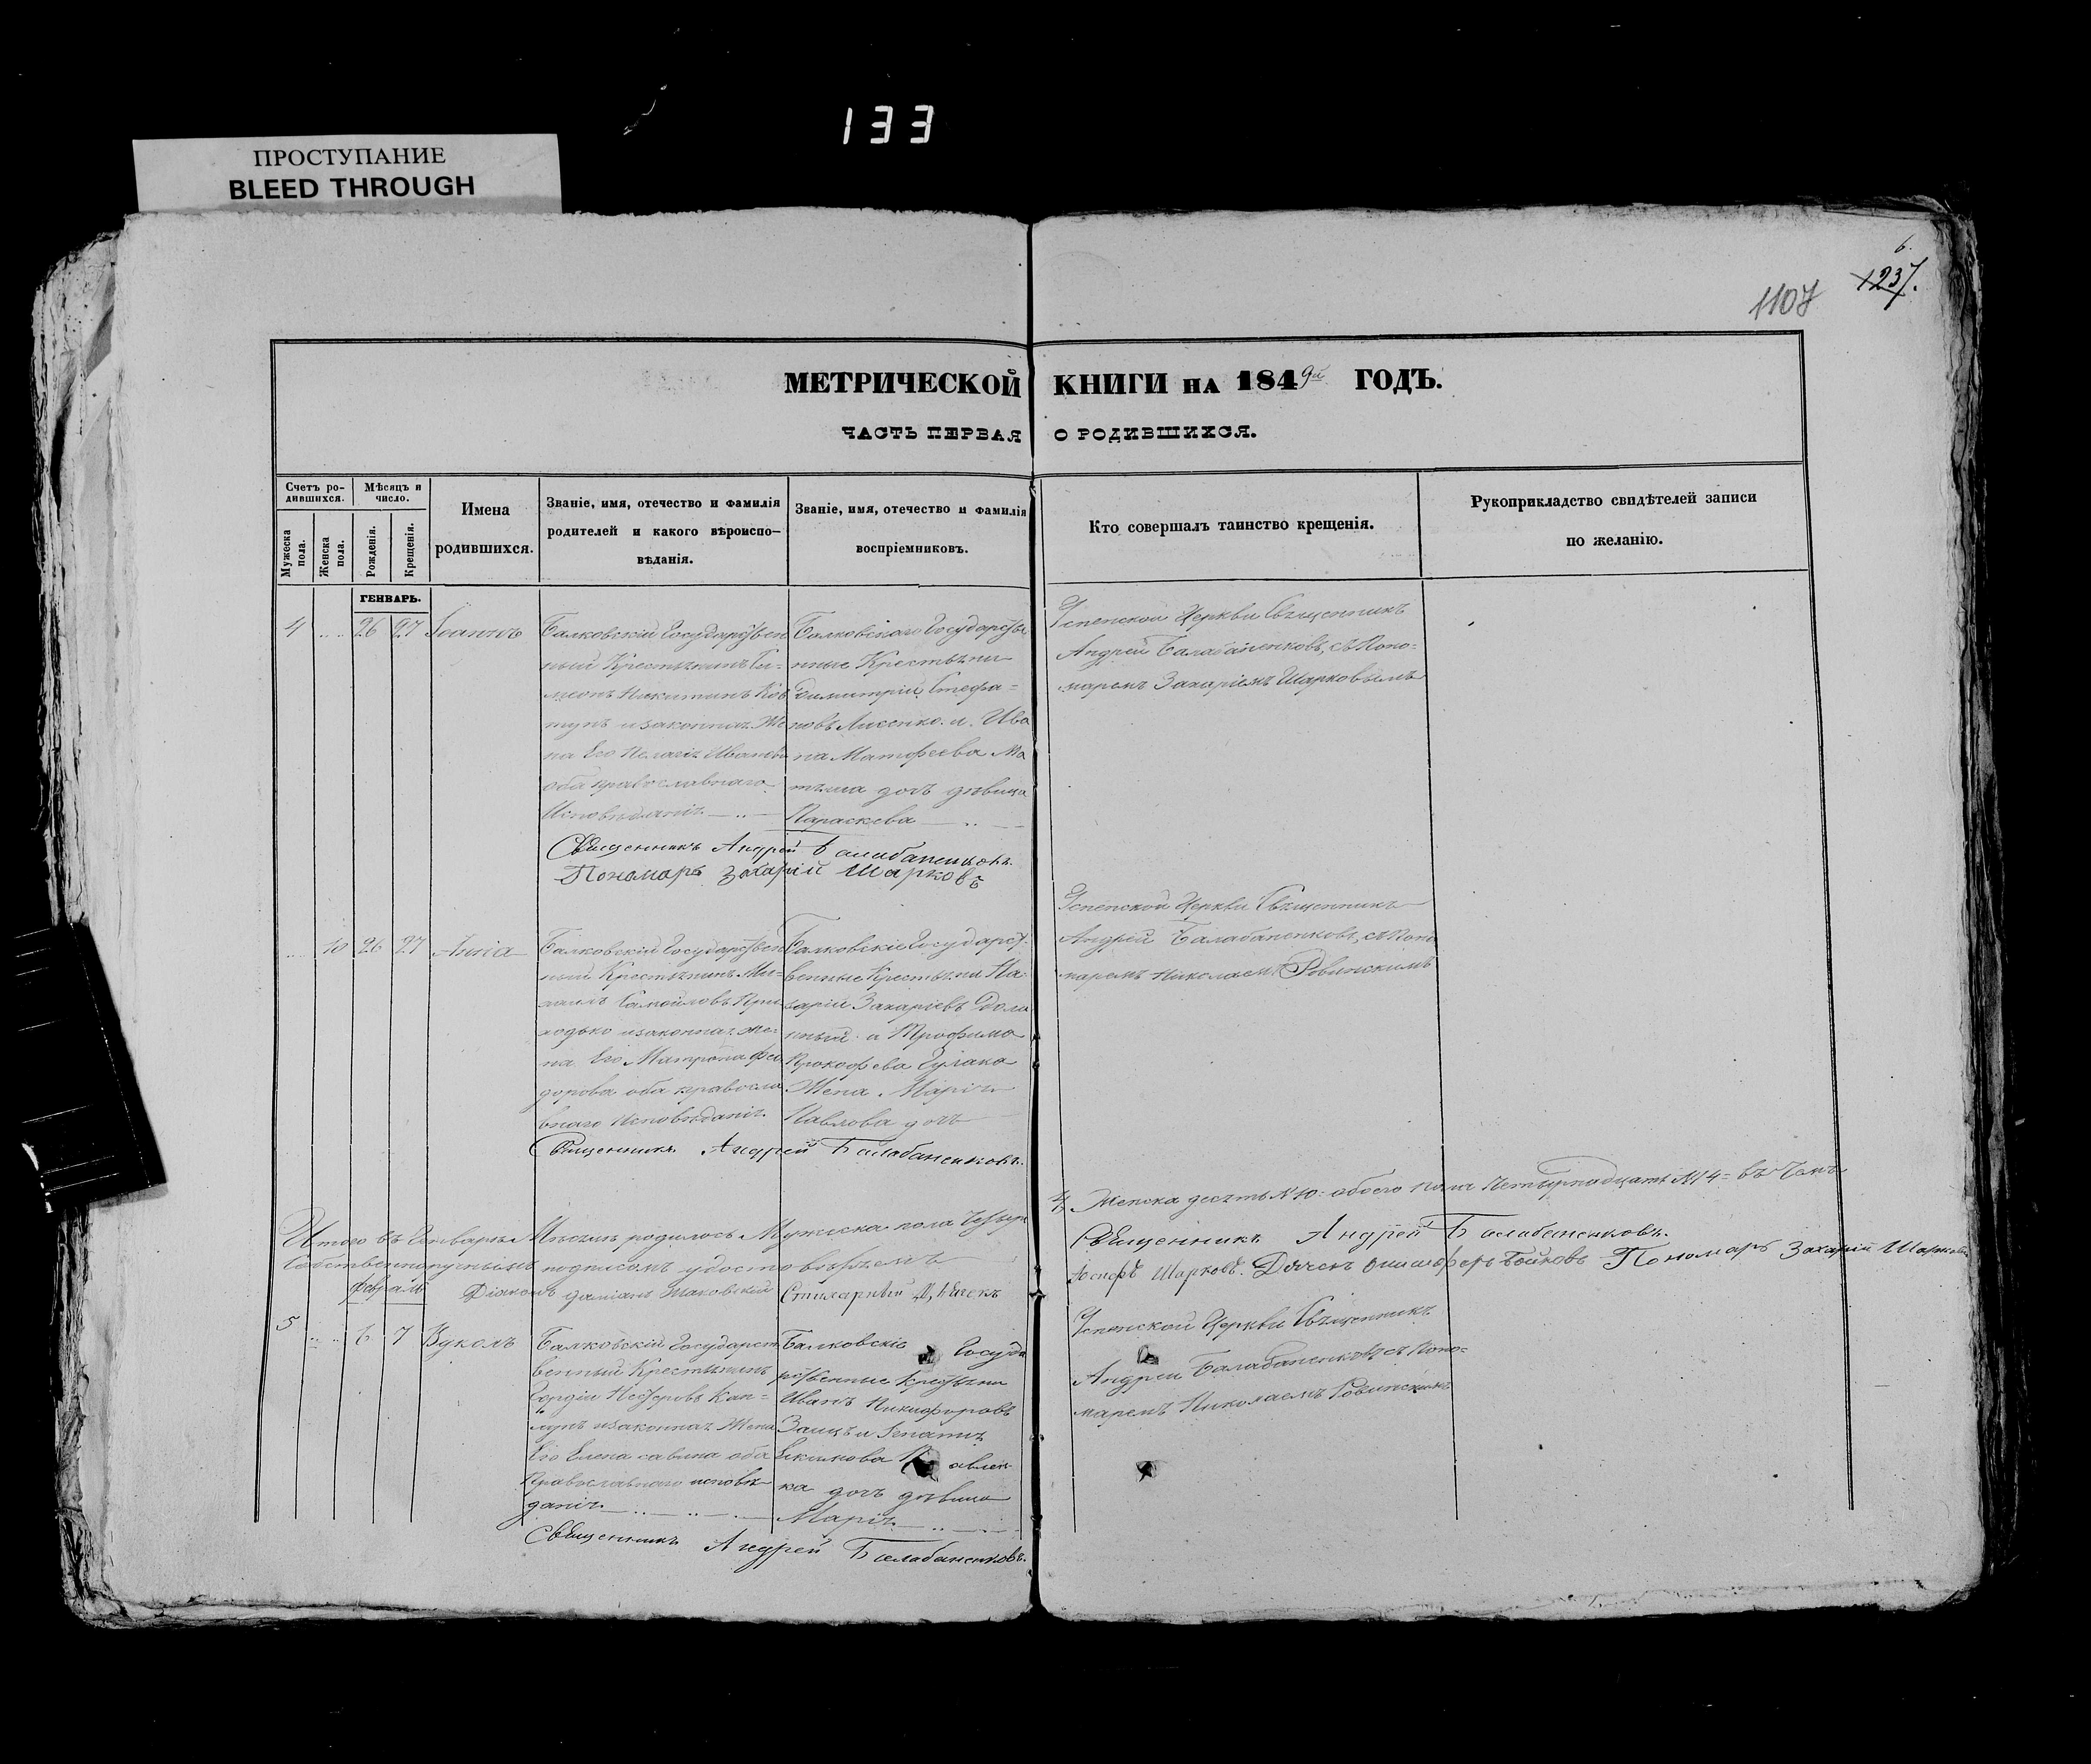 133
ПРОСТУПАНИЕ
BLEED THROUGH
6.
1237.
1107
МЕТРИЧЕСКОЙ КНИГИ НА 1849й ГОДЪ.
ЧАСТЬ ПЕРВАЯ О РОДИВШИХСЯ.
Счетъ ро-
дившихся.
Мѣсяцъ и
число.
Мужеска
пола.
Женска
пола.
Рожденія.
Крещенія.
Имена
родившихся.
Званіе, имя, отечество и фамилія
родителей и какого вѣроиспо-
вѣданія.
Званіе, имя, отечество и фамилія
воспріемниковъ.
Кто совершалъ таинство крещенія.
Рукоприкладство свидѣтелей записи
по желанію.
ГЕНВАРЬ.
4 26 27 Іоаннъ
Балковскій Государствен
ный Крестьянинъ Си-
меонъ Никитинъ Ков
тунъ и законная Же
на Его Пелагія Иванова
оба православнаго
Исповѣданія
Балковскаго Государстве
нные Крестьяни
Димитрій Стефа-
новъ Лисенко и Ива
на Матфеева Ма
дочь дѣвица
Параскева
Успенской Церкви Священникъ
Андрей Балабаненковъ, съ Поно-
маремъ Захаріемъ Шарковымъ
Священникъ Андрей Балабаненковъ.
Пономарь Захарій Шарковъ
10 26 27 Анна
Балковскій Государствен
ный Крестьянинъ Ми-
хаилъ Самойловъ При
ходько и законная же-
на Его Матрона Фео
дорова оба правосла
внаго Исповѣданія
Балковскіе Государст-
венные Крестьяни На-
зарій Захаріевъ
и Трофима
Прокофьева Гулака
Жена Марія
Павлова дочь
Успенской Церкви Священникъ
Андрей Балабаненковъ, съ Поно
маремъ Николаемъ Ровинскимъ
Священникъ Андрей Балабаненковъ.
Итого въ Генварѣ Мѣсяцѣ родилось Мужеска пола Четыре
4, Женска десять №10 = обоего пола Четырнадцать №14 = въ чемъ
Собственноручнымъ подписомъ удостовѣряемъ
Священникъ Андрей Балабаненковъ.
Діаконъ Даміанъ Маковскій
Іосифъ Шарковъ. Дячекъ Бойковъ Пономарь Захарій Шарковъ
Февраль
5 6 7 Вуколъ
Балковскій Государст
венный Крестьянинъ
Гордій Несторовъ Кап-
лунъ и законная Жена
Его Елена Савина оба
Православнаго исповѣ-
данія
Балковскіе Госуда
рственные Крестьяни
Иванъ Никифоровъ
Заицъ и Игнатія
дочь дѣвица
Марія
Успенской Церкви Священникъ
Андрей Балабаненковъ съ Поно-
маремъ Николаемъ Ровинскимъ
Священникъ Андрей Балабаненковъ.